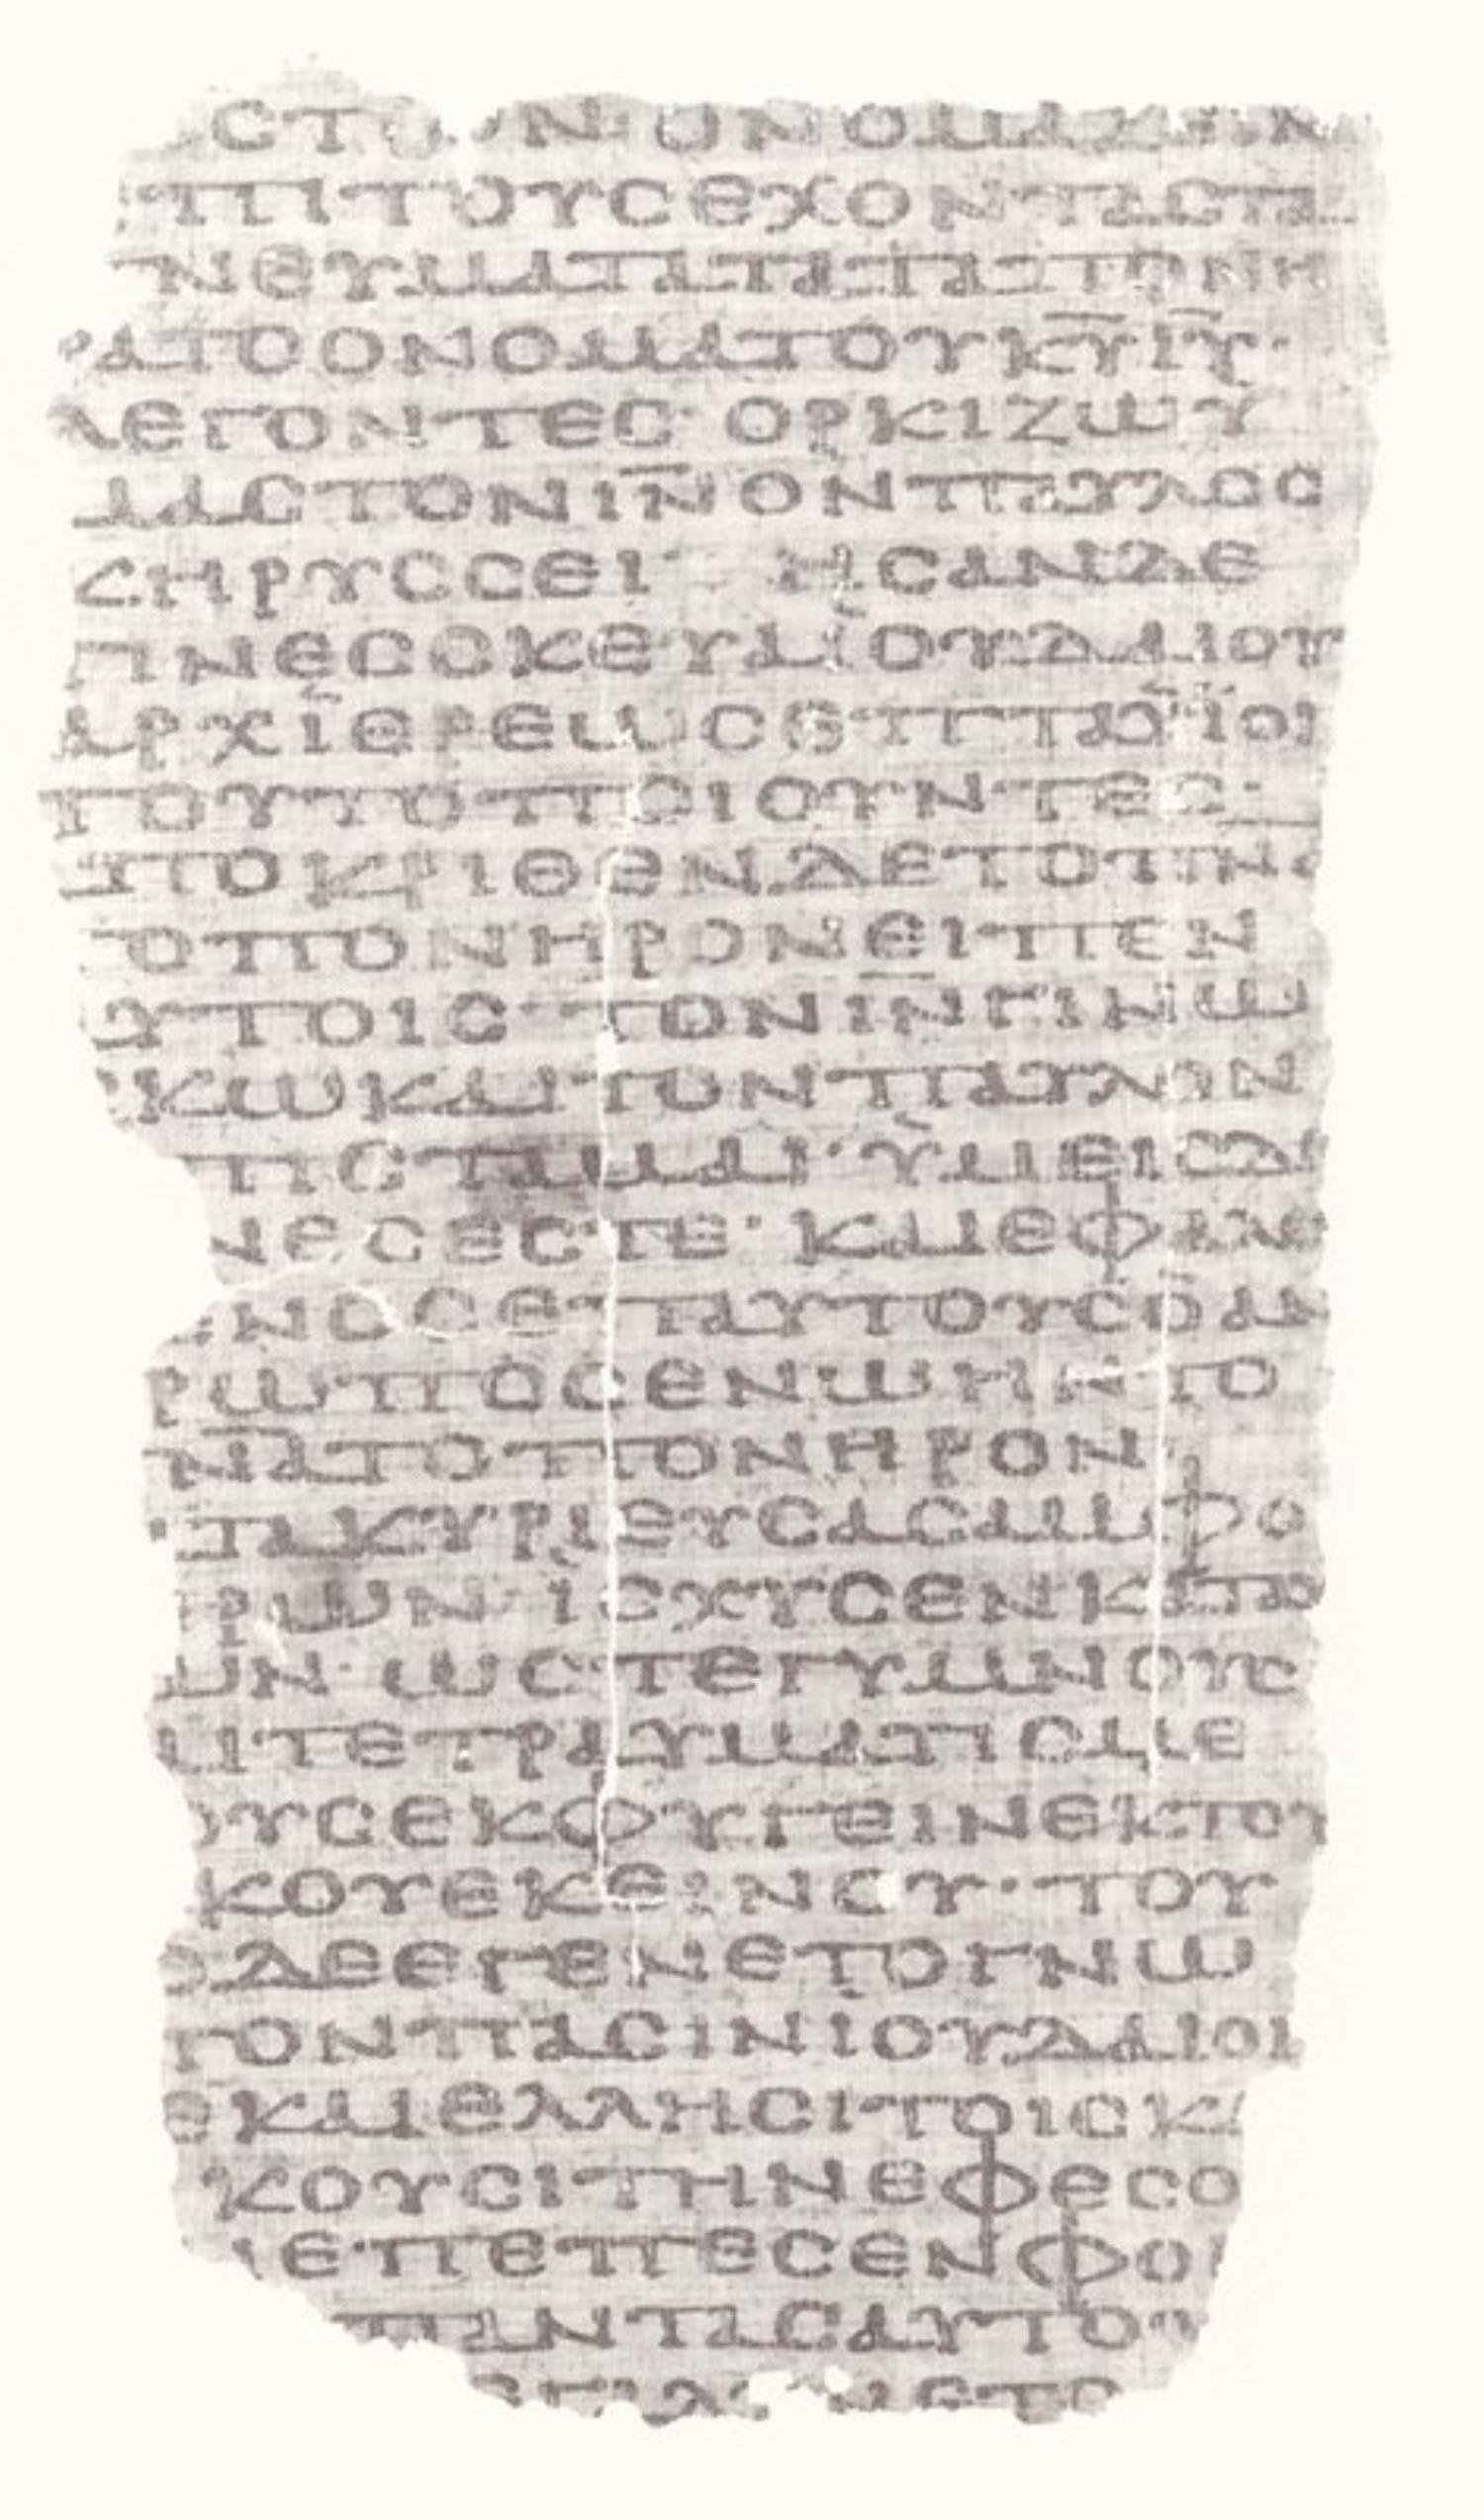 ϹΤ ΩΝ ΟΝΟΜΑΖΕΙΝ
ΕΠΙΤΟΥϹΕΧΟΝΤΑϹΠ
ΝΕΥΜΑΤΑΤΑΤΟΝΗ
ΡΑΤΟΟΝΟΜΑΤΟΥΚ̅Υ̅Ι̅Υ̅·
ΛΕΓΟΝΤΕϹ· ΟΡΚΙΖΩΥ
ΜΑϹΤΟΝΙ̅Ν̅ΟΝΠΑΥΛΟϹ
ΚΗΡΥϹϹΕΙ· ΗϹΑΝΔΕ
ΤΙΝΕϹϹΚΕΥΑΪΟΥΔΑΙΟΥ
ΑΡΧΪΕΡΕΩϹΕΠΤΑΫΙΟΙ
ΤΟΥΤΟΠΟΙΟΥΝΤΕϹ·
ΑΠΟΚΡΙΘΕΝΔΕΤΟΠΝΑ
ΤΟΠΟΝΗΡΟΝΕΙΠΕΝ
ΑΥΤΟΙϹ· ΤΟΝΙ̅Ν̅ΓΙΝΩ
ϹΚΩΚΑΙΤΟΝΠΑΥΛΟΝ
ΠΙϹΤΑΜΑΙ· ΫΜΕΙϹΔΕ
ΙΝΕϹΕϹΤΕ· ΚΑΙΕΦΑΛΛΟ
ΕΝΟϹΕΠΑΥΤΟΥϹΟΑΝ
ΡΩΠΟϹΕΝΩΗΝΤΟ
Π̅Ν̅Α̅ΤΟΠΟΝΗΡΟΝ
ΤΑΚΥΡΙΕΥϹΑϹΑΜΦΟ
ΕΡΩΝ ΪϹΧΥϹΕΝΚΑΤΑΥ
ΩΝ· ΩϹΤΕΓΥΜΝΟΥϹ
ΑΙΤΕΤΡΑΥΜΑΤΙϹΜΕ
ΟΥϹΕΚΦΥΓΕΙΝΕΚΤΟΥ
ΚΟΥΕΚΕΙΝΟΥ· ΤΟΥ
ΟΔΕΕΓΕΝΕΤΟΓΝΩ
ΤΟΝΠΑϹΙΝΙΟΥΔΑΙΟΙ
ΕΚΑΙΕΛΛΗϹΙΤΟΙϹΚΑ
ΙΚΟΥϹΙΤΗΝΕΦΕϹΟ
ΙΕΠΕΠΕϹΕΝΦΟ
ΠΑΝΤΑϹΑΥΤΟΥ
ΕΓΑΛΥΝΕΤΟ